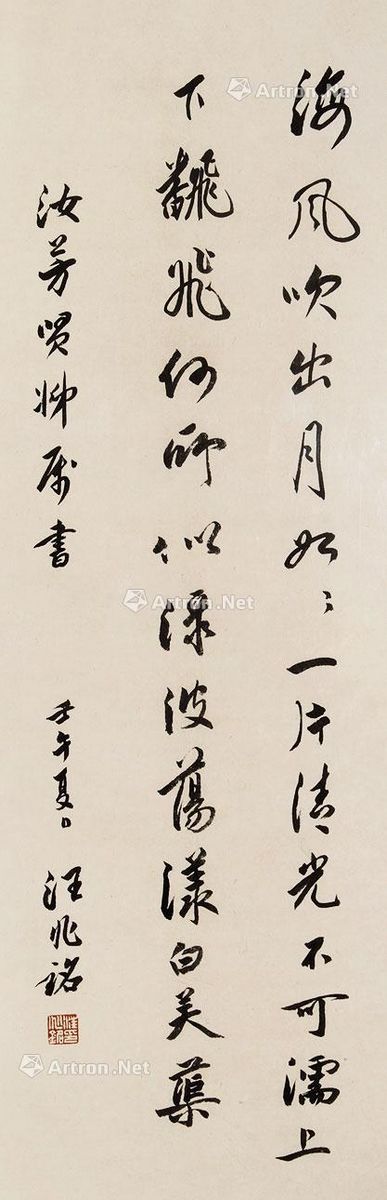 海風吹出月如々一片清光不可濡上
下飜飛何所似渌波蕩漾白芙蕖
汝芳賢屬書
壬午夏日 汪兆銘
Artron.Net
Artron.Net
Artron.Net
Artron.Net